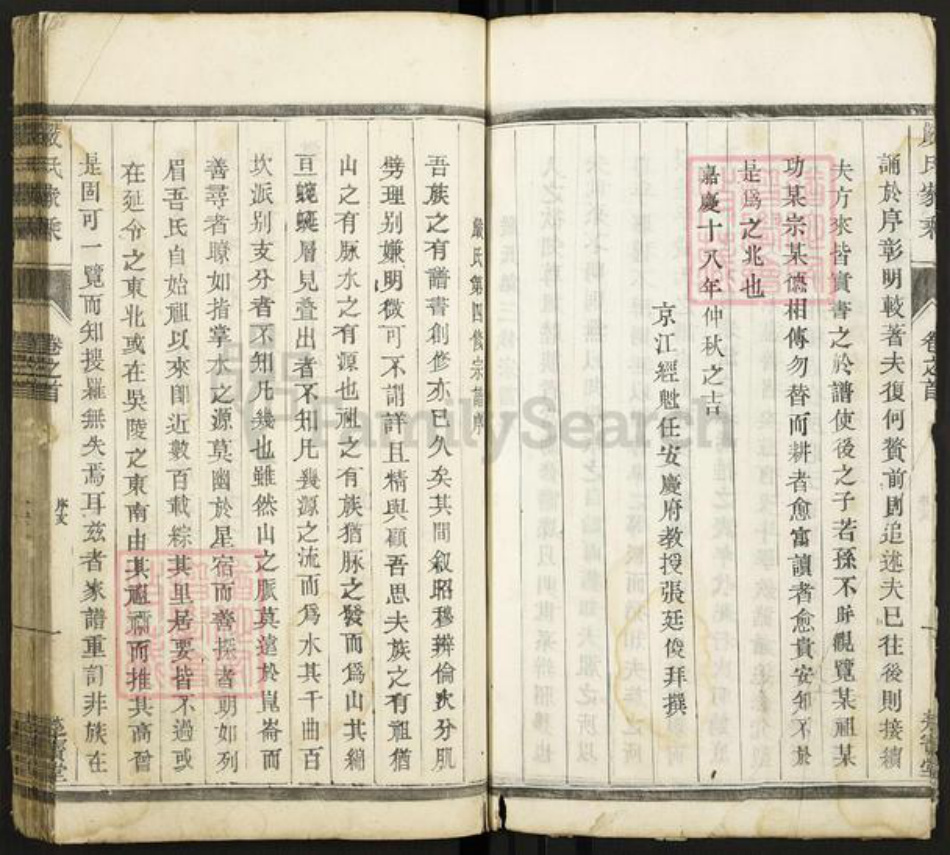 誦於序彰明較著夫復何贅前則追述夫已往後則接續
夫方來皆實書之於譜使後之子若孫不時覩覽某祖某
功某宗某德相傳勿替而耕者愈富讀者愈貴安知不於
是爲之兆也
嘉慶十八年仲秋之吉
京江經魁任安慶府教授張廷俊拜撰
嚴氏第四修宗譜序
吾族之有譜書創修亦已久矣其間敘昭穆辨倫次分肌
劈理别嫌明微可不謂詳且精與顧吾思夫族之有祖猶
山之有脉水之有源也祖之有族猶脉之發而爲山其綿
亘蜿蜒層見疊出者不知凡幾源之流而爲水其千曲百
坎派别支分者不知凡幾也雖然山之脈莫遠於崑崙而
善尋者瞭如指掌水之源莫幽於星宿而善探者朗如列
眉吾氏自始祖以來即近數百載綜其里居要皆不過或
在延令之東北或在吳陵之東南由其禰而推其高曾
是固可一覽而知搜羅無失焉耳兹者家譜重訂非族在
嚴氏家乘
卷之首
FamilySearch